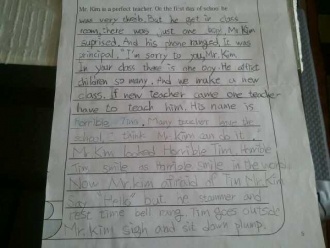 Mr. Kim is a perfect teacher. On the first day of school he
was very fresh. But he get in class
room, there was just one boy. Mr. Kim
suprised. And his phone ranged. It was
principal. "I'm sorry to you, Mr. Kim
In your class there is one boy. He
children so many. And we make a new
class. If new teacher came one teacher
have to teach him. His name is
horrible Tim. Many teacher have
school. I think Mr. Kim can do it."
Mr. Kim looked Horrible Tim. Horrible
Tim smile as horrible smile in the world
Now Mr. Kim afraid of Tim Mr. Kim
Say "Hello" but he stammer and
rest time bell rang. Tim goes outside
Mr. Kim sigh and sit down plump.